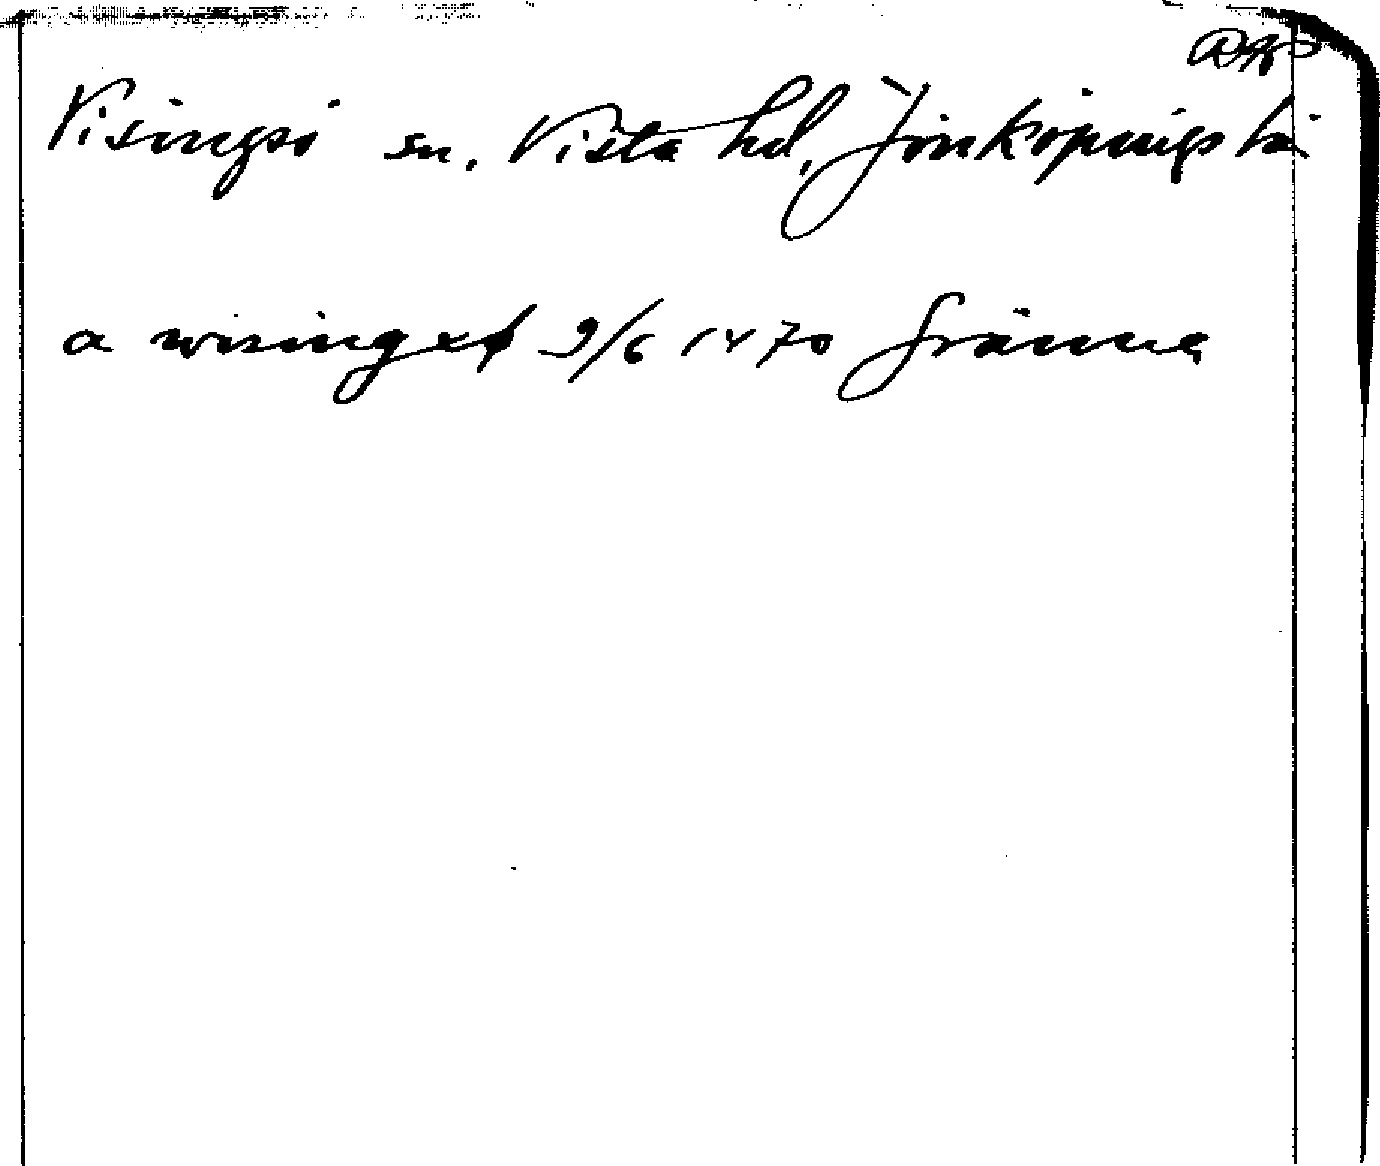 Visingsö sn, Vista hd, Jönköpings län
a wisingxø 9/6 1470 Gränna